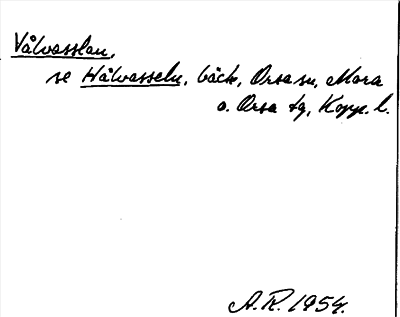 Vålvasslan,
se Hålvasseln, bäck, Orsa sn, Mora
o. Orsa tg, Kopp. l.
A.R. 1954.